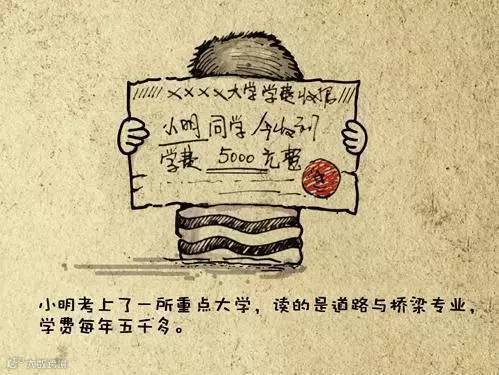 XXXX大学学费收据
小明同学今收到
学费 5000 元整
小明考上了一所重点大学，读的是道路与桥梁专业，
学费每年五千多。